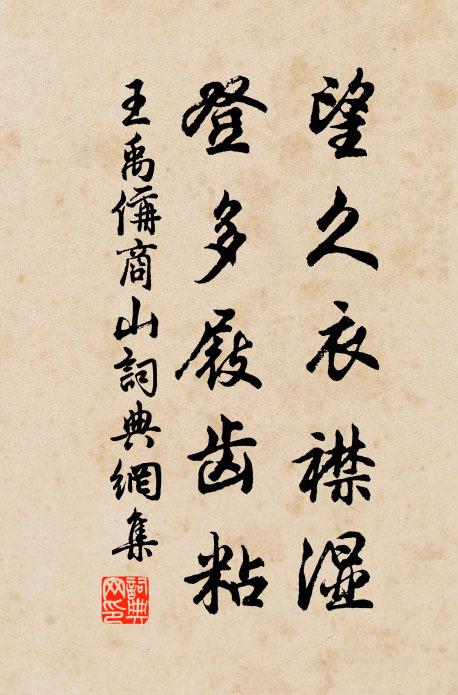 望久衣襟湿
登多屐齿粘
王禹偁商山詞典網集
詞典网印